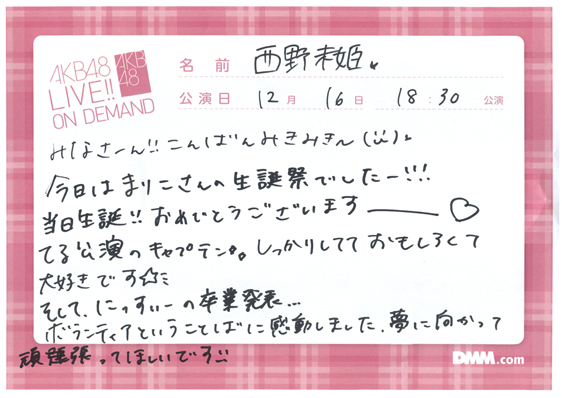 AKB48
LIVE!!
ON DEMAND
AKB
48
名前 西野未姫
公演日 12月 16日 18:30 公演
みなさーん!! こんばんみきみきん(ü)。
今日はまりこさんの生誕祭でしたー!!!
当日生誕!! おめでとうございます―――♡
てる公演のキャプテン。。しっかりしてておもしろくて
大好きです☆ミ
そして、にっすぃーの卒業発表...
ボランティアということばに感動しました、夢に向かって
頑張ってほしいです!!
DMM.com